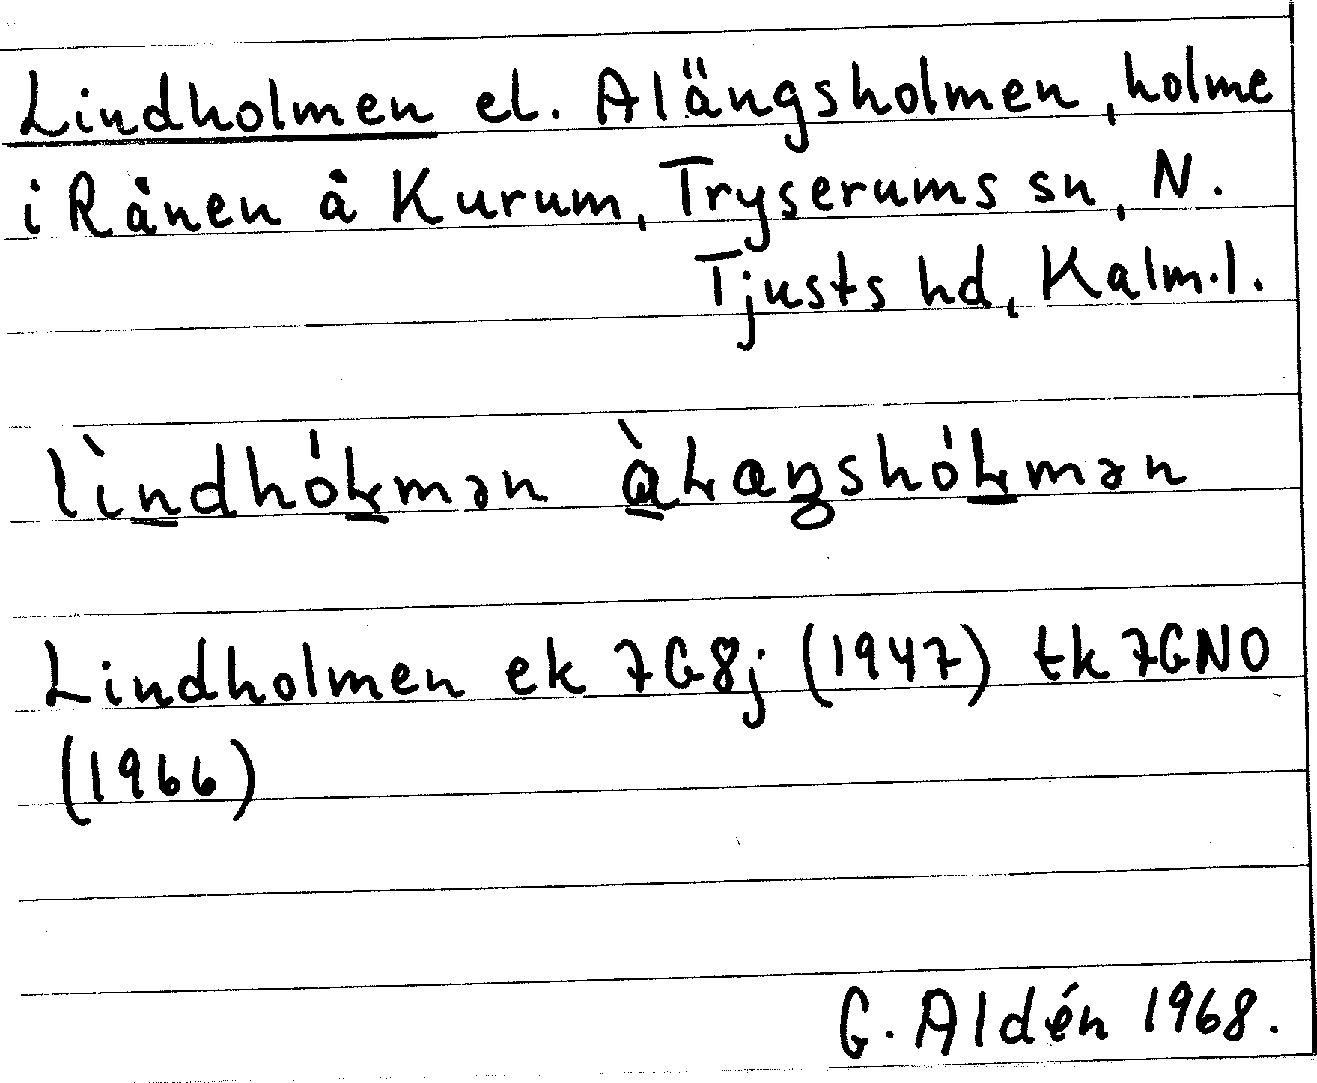 Lindholmen el. Alängsholmen, holme
i Rånen å Kurum, Tryserums sn, N.
Tjusts hd, Kalm.l.
lìndhóɫmən àɫaŋshóɫmən
Lindholmen ek 7G8j (1947) tk 7GNO
(1966)
G. Aldén 1968.